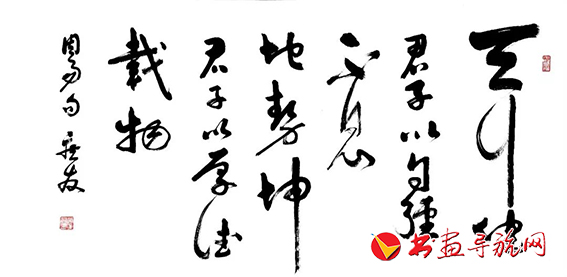 天行健
君子以自强
不息
地势坤
君子以厚德
載物
周易句
书画导航网